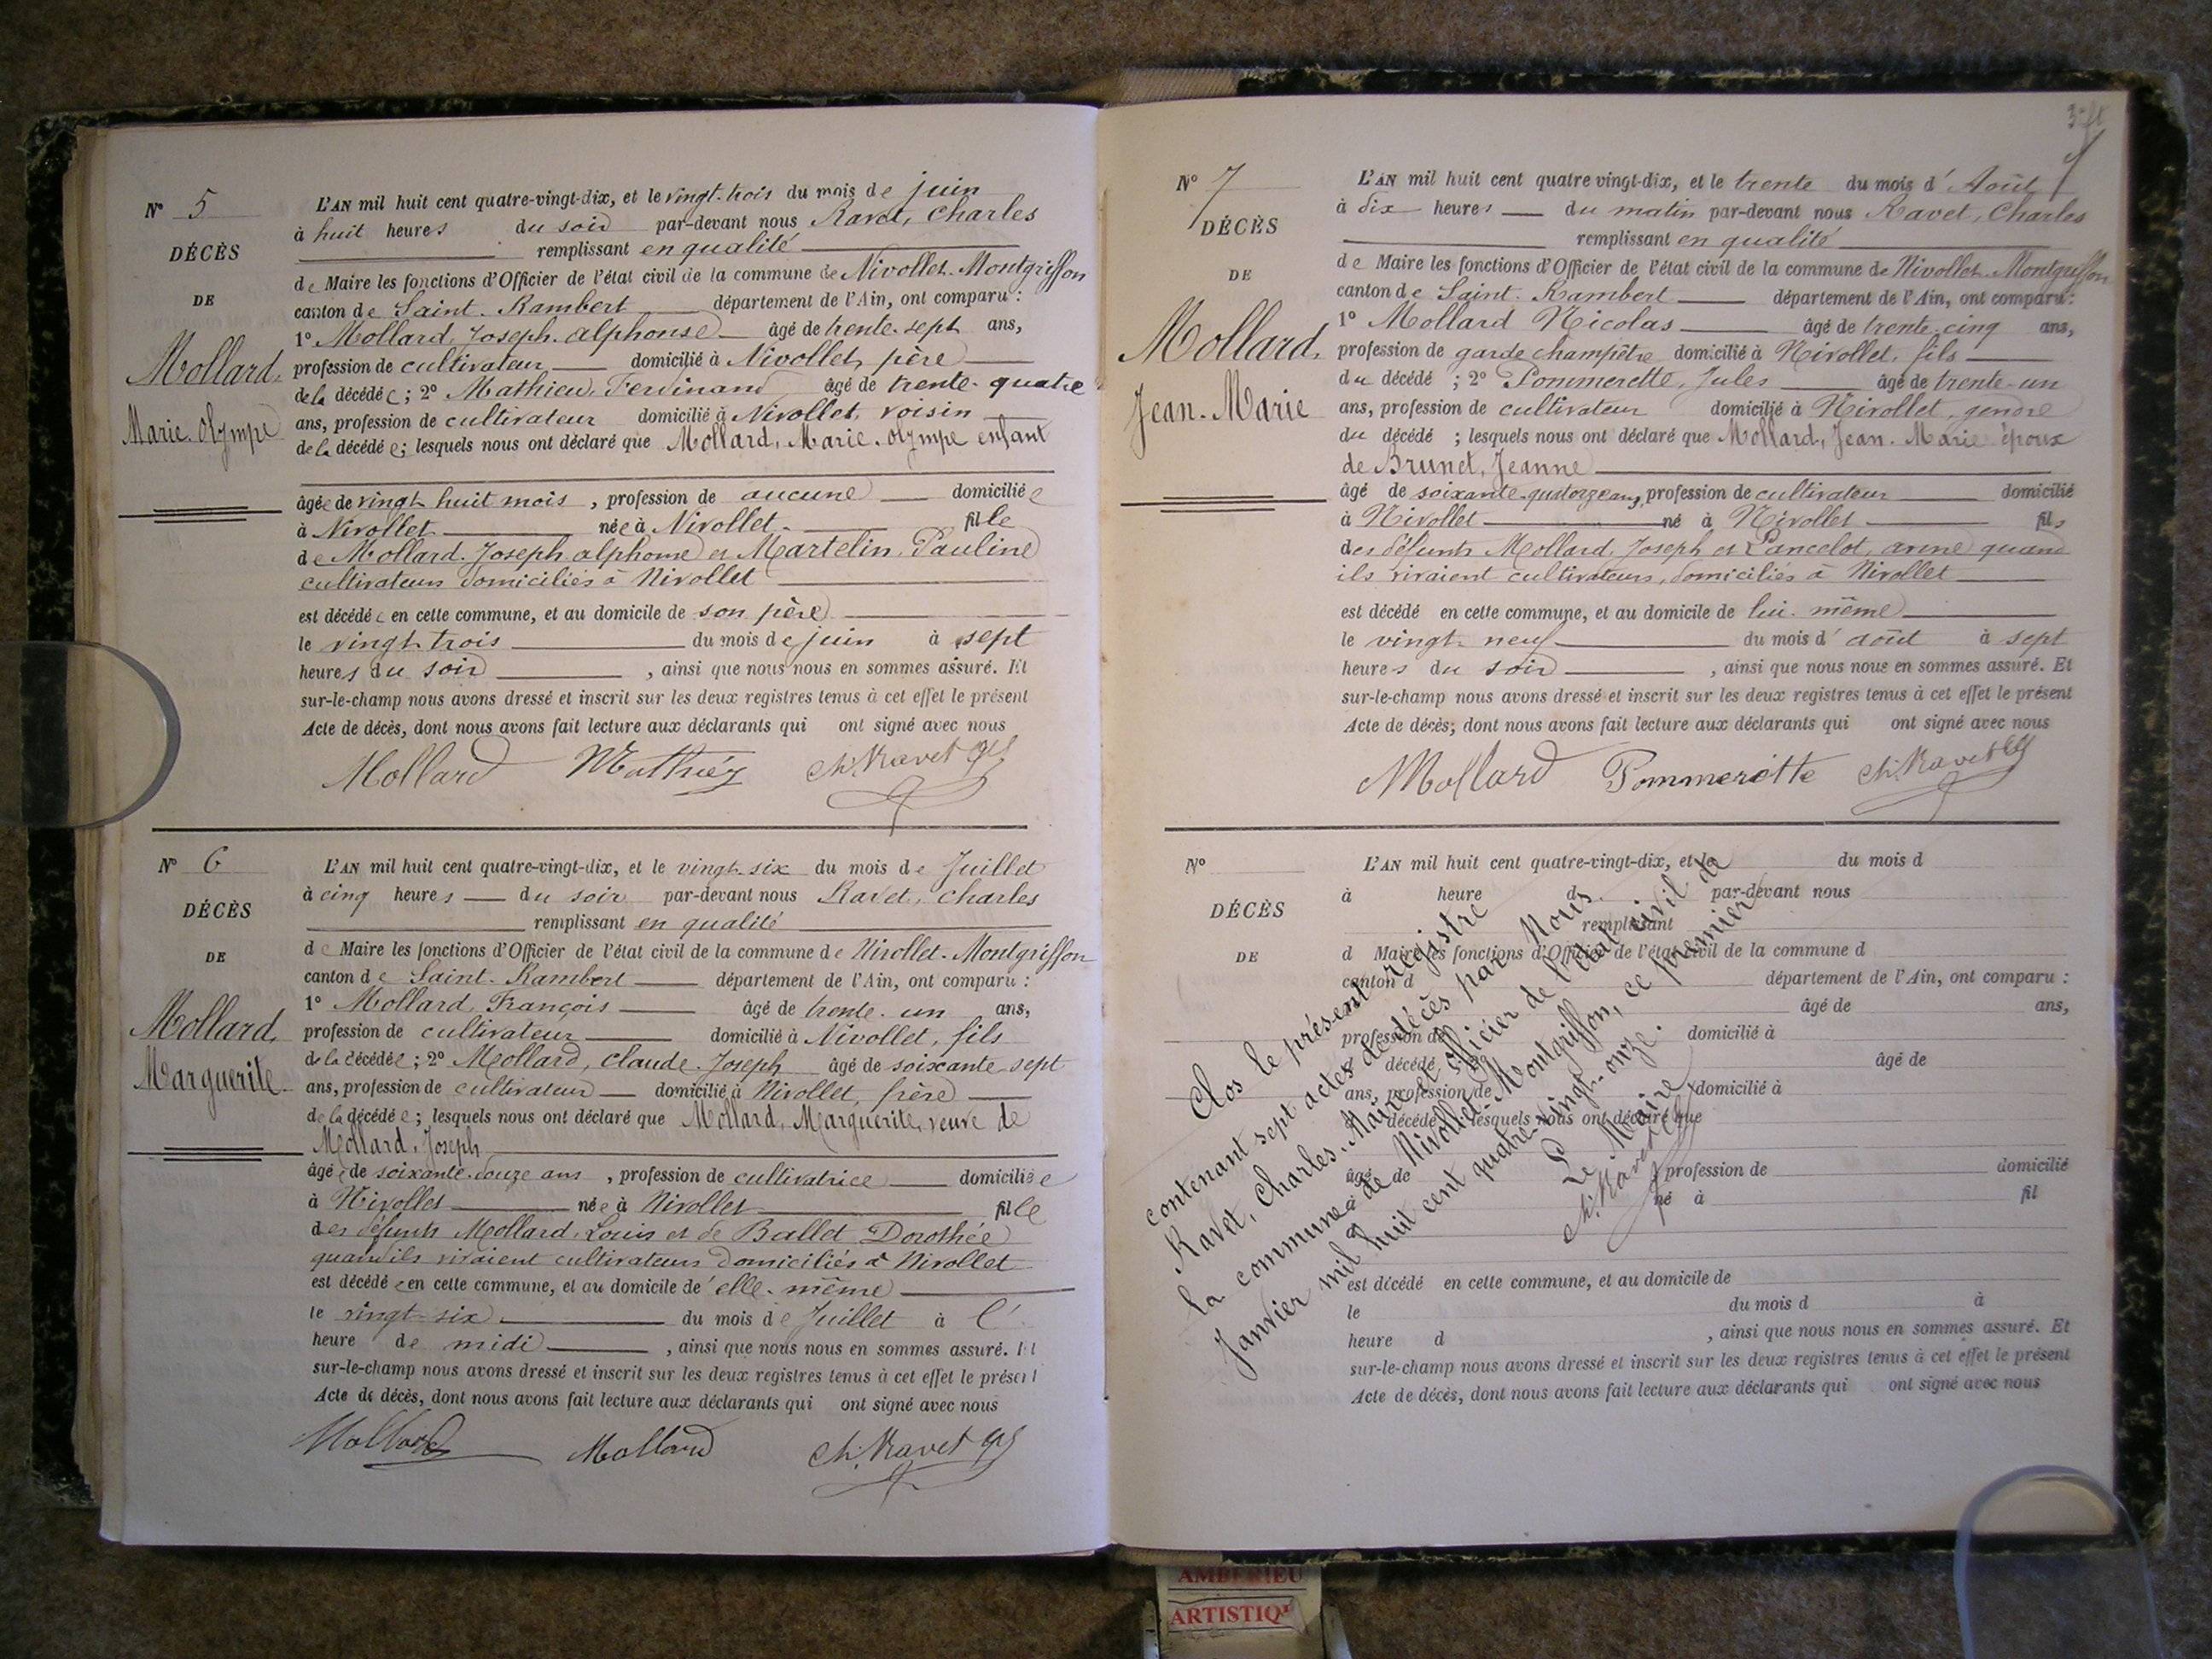 N° 5
DÉCÈS
DE
Mollard,
Marie-Olympe
L'AN mil huit cent quatre-vingt-dix, et le vingt-trois du mois de juin
à huit heures du soir par-devant nous Ravet, Charles
remplissant en qualité
de Maire les fonctions d'Officier de l'état civil de la commune de Nivollet-Montgriffon
canton de Saint-Rambert département de l'Ain, ont comparu :
1° Mollard, Joseph-alphonse âgé de trente-sept ans,
profession de cultivateur domicilié à Nivollet, père
de la décédée ; 2° Mathieu, Ferdinand âgé de trente-quatre
ans, profession de cultivateur domicilié à Nivollet, voisin
de la décédée ; lesquels nous ont déclaré que Mollard, Marie-olympe enfant
âgée de vingt-huit mois , profession de aucune domiciliée
à Nivollet née à Nivollet fille
de Mollard Joseph alphonse et Martelin, Pauline
cultivateurs domiciliés à Nivollet
est décédée en cette commune, et au domicile de son père
le vingt-trois du mois de juin à sept
heures du soir , ainsi que nous nous en sommes assuré. Et
sur-le-champ nous avons dressé et inscrit sur les deux registres tenus à cet effet le présent
Acte de décès, dont nous avons fait lecture aux déclarants qui ont signé avec nous
Mollard Ch. Ravet
N° 6
DÉCÈS
DE
Mollard,
Marguerite
L'AN mil huit cent quatre-vingt-dix, et le vingt-six du mois de Juillet
à cinq heures du soir par-devant nous Ravet, Charles
remplissant en qualité
de Maire les fonctions d'Officier de l'état civil de la commune de Nivollet-Montgriffon
canton de Saint-Rambert département de l'Ain, ont comparu :
1° Mollard, François âgé de trente-un ans,
profession de cultivateur domicilié à Nivollet, fils
de la décédée ; 2° Mollard, Claude-Joseph âgé de soixante-sept
ans, profession de cultivateur domicilié à Nivollet, frère
de la décédée ; lesquels nous ont déclaré que Mollard, Marguerite, veuve de
Mollard, Joseph
âgée de soixante-douze ans , profession de cultivatrice domiciliée
à Nivollet née à Nivollet fille
des défunts Mollard, Louis et de Ballet Dorothée
quand ils vivaient cultivateurs domiciliés à Nivollet
est décédée en cette commune, et au domicile de elle-même
le vingt-six du mois de Juillet à l'
heure de midi , ainsi que nous nous en sommes assuré. Et
sur-le-champ nous avons dressé et inscrit sur les deux registres tenus à cet effet le présent
Acte de décès, dont nous avons fait lecture aux déclarants qui ont signé avec nous
Mollard Mollard Ch. Ravet
N° 7
DÉCÈS
DE
Mollard,
Jean-Marie
L'AN mil huit cent quatre vingt-dix, et le trente du mois d'Août
à dix heures du matin par-devant nous Ravet, Charles
remplissant en qualité
de Maire les fonctions d'Officier de l'état civil de la commune de Nivollet-Montgriffon
canton de Saint-Rambert département de l'Ain, ont comparu :
1° Mollard Nicolas âgé de trente-cinq ans,
profession de garde champêtre domicilié à Nivollet, fils
du décédé ; 2° Pommerette, Jules âgé de trente-un
ans, profession de cultivateur domicilié à Nivollet, gendre
du décédé ; lesquels nous ont déclaré que Mollard, Jean-Marie époux
de Brunet, Jeanne
âgé de soixante-quatorze ans, profession de cultivateur domicilié
à Nivollet né à Nivollet fils
des défunts Mollard, Joseph et Lancelot, anne quand
ils vivaient cultivateurs, domiciliés à Nivollet
est décédé en cette commune, et au domicile de lui-même
le vingt-neuf du mois d'août à sept
heures du soir , ainsi que nous nous en sommes assuré. Et
sur-le-champ nous avons dressé et inscrit sur les deux registres tenus à cet effet le présent
Acte de décès, dont nous avons fait lecture aux déclarants qui ont signé avec nous
Mollard Pommerette Ch. Ravet
N°
DÉCÈS
DE
L'AN mil huit cent quatre-vingt-dix, et le du mois d
à heure d par-devant nous
remplissant
d Maire les fonctions d'Officier de l'état civil de la commune d
canton d département de l'Ain, ont comparu :
âgé de ans,
profession de domicilié à
d décédé ; 2° âgé de
ans, profession de domicilié à
d décédé ; lesquels nous ont déclaré que
âgé de profession de domicilié
à né à fil
d
est décédé en cette commune, et au domicile de
le du mois d à
heure d , ainsi que nous nous en sommes assuré. Et
sur-le-champ nous avons dressé et inscrit sur les deux registres tenus à cet effet le présent
Acte de décès, dont nous avons fait lecture aux déclarants qui ont signé avec nous
Clos le présent registre
contenant sept actes de décès par Nous
Ravet, Charles, Maire et officier de l'état civil de
la commune de Nivollet-Montgriffon, ce premier
Janvier mil huit cent quatre-vingt-onze.
Le Maire
Ch. Ravet
AMBERIEU
ARTISTIQ